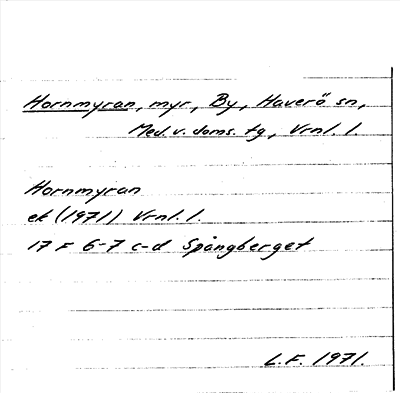 Hornmyran, myr, By, Haverö sn,
Med. v. doms. tg, Vrnl. l.
Hornmyran
ek (1971) Vrnl. l.
17 F 6-7 c-d Spångberget
L.F. 1971.